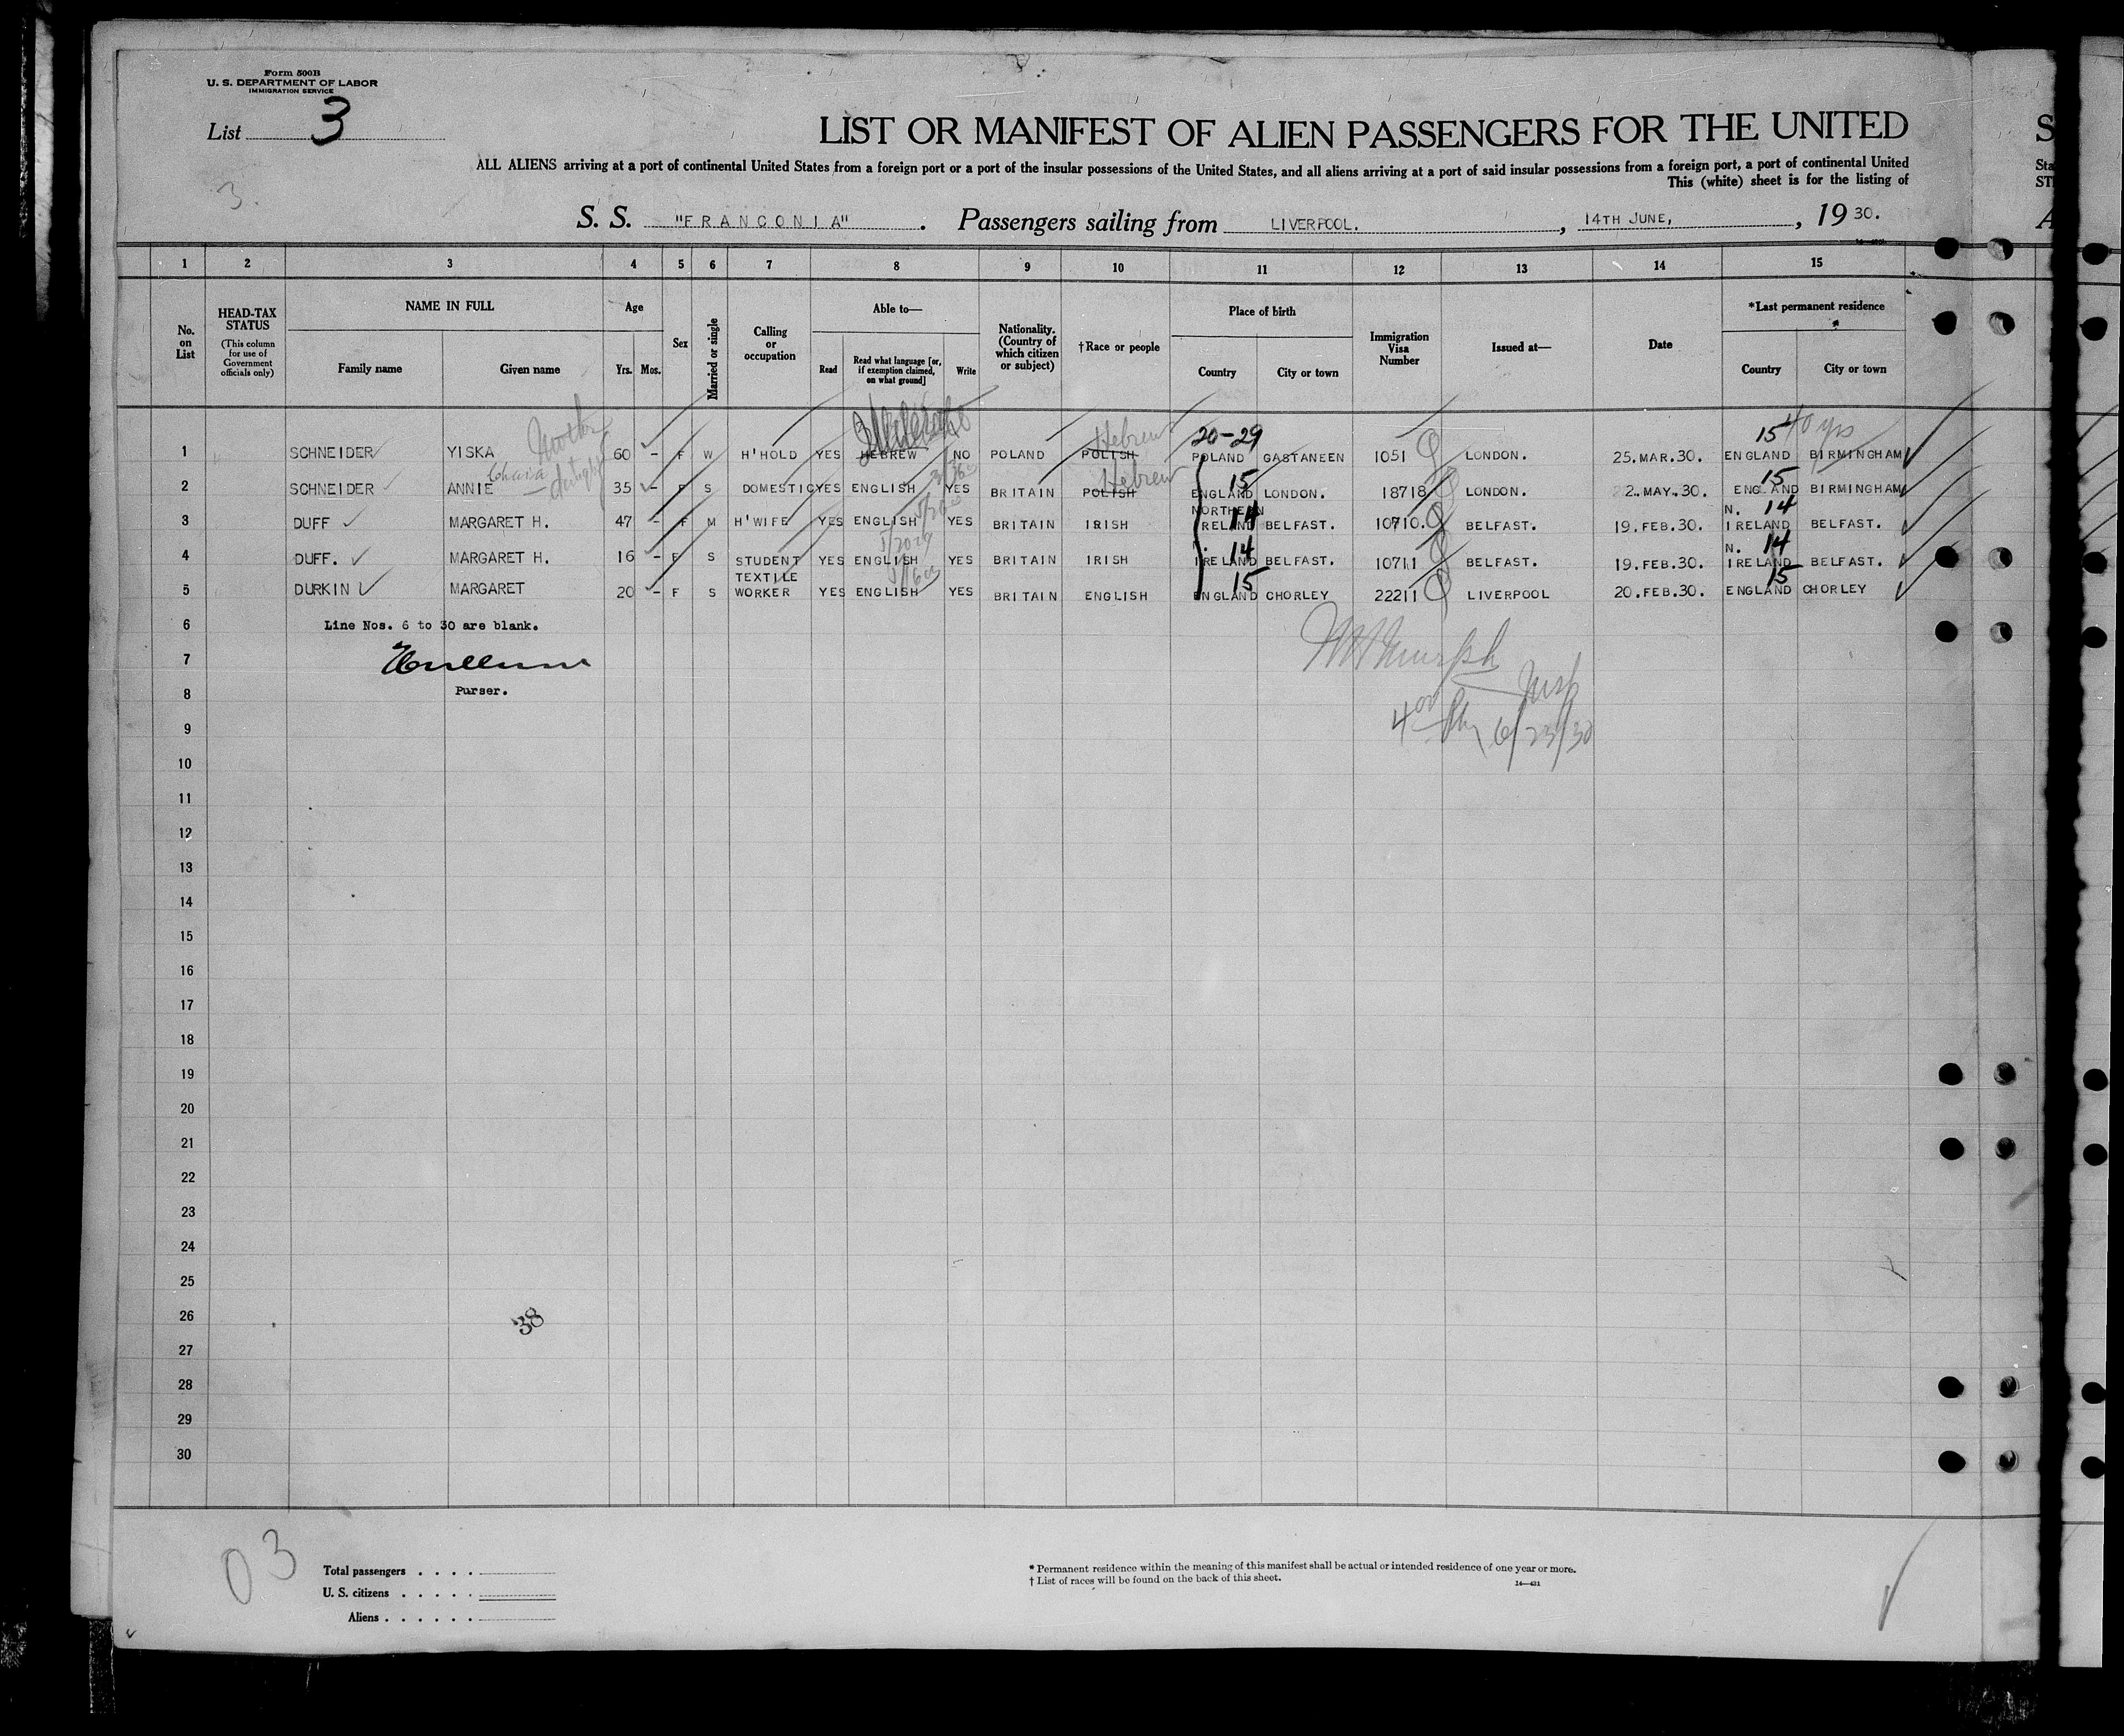 Form 500B
U. S. DEPARTMENT OF LABOR
IMMIGRATION SERVICE
List 3
3.
LIST OR MANIFEST OF ALIEN PASSENGERS FOR THE UNITED
ALL ALIENS arriving at a port of continental United States from a foreign port or a port of the insular possessions of the United States, and all aliens arriving at a port of said insular possessions from a foreign port, a port of continental United
This (white) sheet is for the listing of
S. S. "FRANCONIA". Passengers sailing from LIVERPOOL., 14TH JUNE, , 19 30.
1 2 3 4 5 6 7 8 9 10 11 12 13 14 15
No. on List
HEAD-TAX STATUS (This column for use of Government officials only)
NAME IN FULL Family name Given name
Age Yrs. Mos.
Sex
Married or single
Calling or occupation
Able to— Read Read what language [or, if exemption claimed, on what ground] Write
Nationality. (Country of which citizen or subject)
†Race or people
Place of birth Country City or town
Immigration Visa Number
Issued at—
Date
*Last permanent residence Country City or town
Mother Hebrew 20-29 15 40 yrs
1 SCHNEIDER YISKA 60 - F W H'HOLD YES HEBREW NO POLAND POLISH POLAND GASTANEEN 1051 LONDON. 25.MAR.30. ENGLAND BIRMINGHAM
Hebrew 15 15
2 SCHNEIDER ANNIE 35 - F S DOMESTIC YES ENGLISH YES BRITAIN POLISH ENGLAND LONDON. 18718 LONDON. 2.MAY.30. ENGLAND BIRMINGHAM
3 DUFF MARGARET H. 47 - F M H'WIFE YES ENGLISH YES BRITAIN IRISH NORTHERN IRELAND 14 BELFAST. 10710. BELFAST. 19.FEB.30. N. 14 IRELAND BELFAST.
4 DUFF. MARGARET H. 16 - F S STUDENT YES ENGLISH YES BRITAIN IRISH N. 14 IRELAND BELFAST. 10711 BELFAST. 19.FEB.30. N. 14 IRELAND BELFAST.
5 DURKIN MARGARET 20 - F S TEXTILE WORKER YES ENGLISH YES BRITAIN ENGLISH 15 ENGLAND CHORLEY 22211 LIVERPOOL 20.FEB.30. 15 ENGLAND CHORLEY
6 Line Nos. 6 to 30 are blank.
7
8 Purser.
6/23/30
9
10
11
12
13
14
15
16
17
18
19
20
21
22
23
24
25
26
38
27
28
29
30
03
Total passengers . . . .
U. S. citizens . . . . .
Aliens . . . . . .
* Permanent residence within the meaning of this manifest shall be actual or intended residence of one year or more.
† List of races will be found on the back of this sheet.
14—421